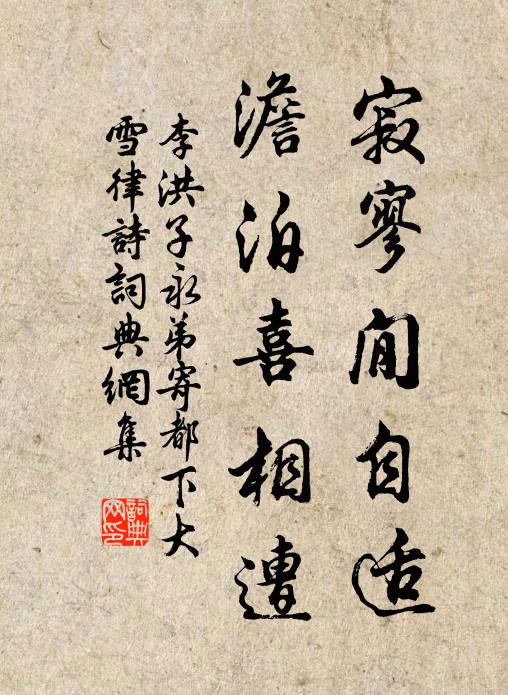 寂寥閒自适
澹泊喜相遭
李洪子永弟寄都下大
雪律詩詞典網集
詞典网印